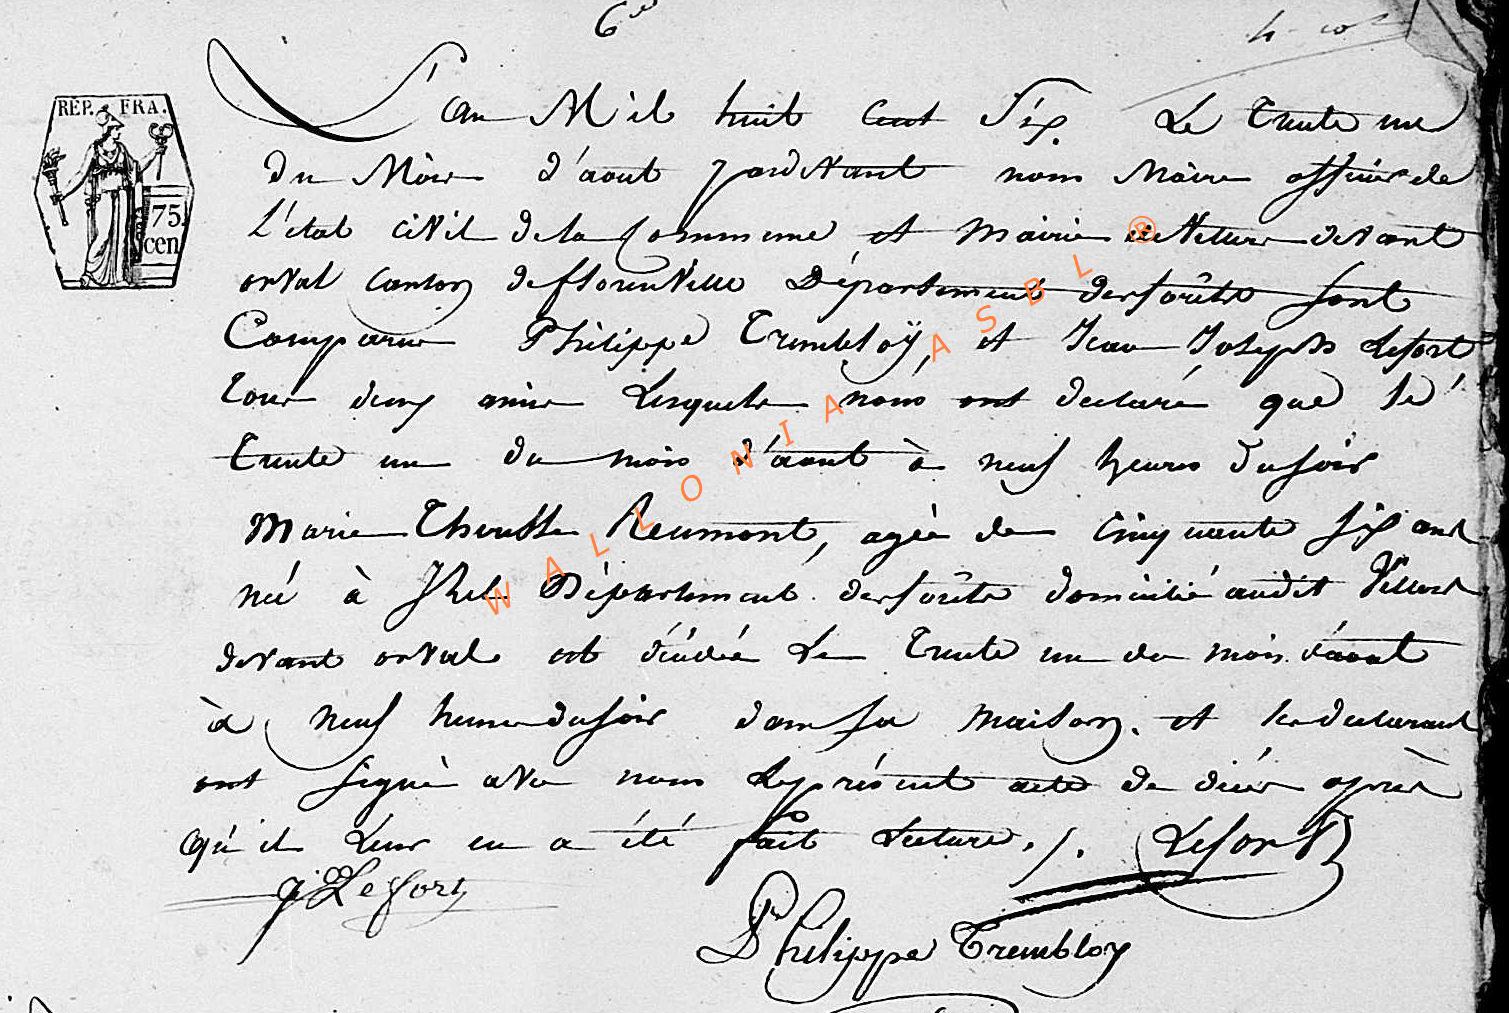 6
RÉP. FRA.
75
cen
L'an Mil huit cent Six Le trente un
du Mois d'aout pardevant nous Maire officier de
L'état civil de la Commune et Mairie de Villers devant
orval canton de florenville Département des forêts sont
Comparu Philippe Trembloÿ, et Jean Joseph Lefort
tous deux amis Lesquels nous ont declaré que le
trente un du mois d'aout à neuf heures du soir
Marie Theresse Reumont, agée de cinquante six ans
né à Département des forêts domicilié audit Villers
devant orval est décédée Le trente un du mois d'aout
à neuf heures du soir dans sa maison. et les declarant
ont signé avec nous Le présent acte de décès après
qu'il Leur en a été fait Lecture. /. Lefort
J Lefort
Philippe Trembloy
WALLONIA ASBL ®